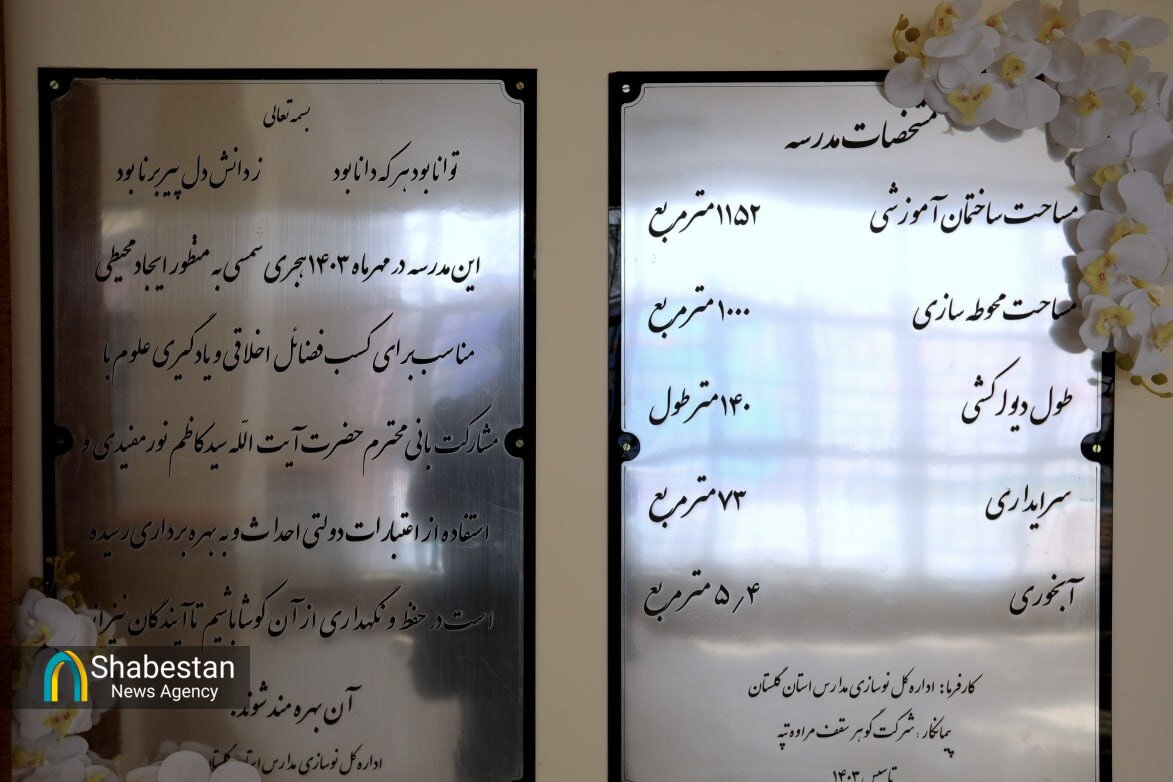 بسمه تعالی
توانا بود هر که دانا بود ز دانش دل پیر برنا بود
این مدرسه در مهرماه ۱۴۰۳ هجری شمسی به منظور ایجاد محیطی
مناسب برای کسب فضائل اخلاقی و یادگیری علوم با
مشارکت بانی محترم حضرت آیت اللّه سید کاظم نورمفیدی و
استفاده از اعتبارات دولتی احداث و به بهره برداری رسیده
است در حفظ و نگهداری از آن کوشا باشیم تا آیندگان نیز از
آن بهره مند شوند.
اداره کل نوسازی مدارس استان گلستان
مشخصات مدرسه
مساحت ساختمان آموزشی ۱۱۵۲ مترمربع
مساحت محوطه سازی ۱۰۰۰ مترمربع
طول دیوارکشی ۱۴۰ متر طول
سرایداری ۷۳ مترمربع
آبخوری ۵٫۴ مترمربع
کارفرما: اداره کل نوسازی مدارس استان گلستان
پیمانکار: شرکت گوهر سقف مراوه تپه
تاسیس ۱۴۰۳
Shabestan
News Agency